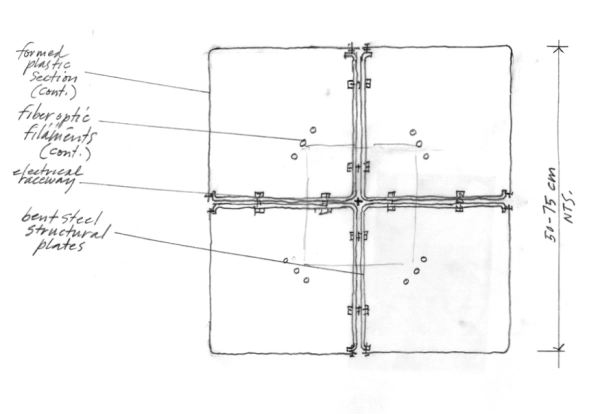 formed
plastic
section
(cont.)
fiber optic
filaments
(cont.)
electrical
raceway
bent steel
structural
plates
50-75 cm
NTS.